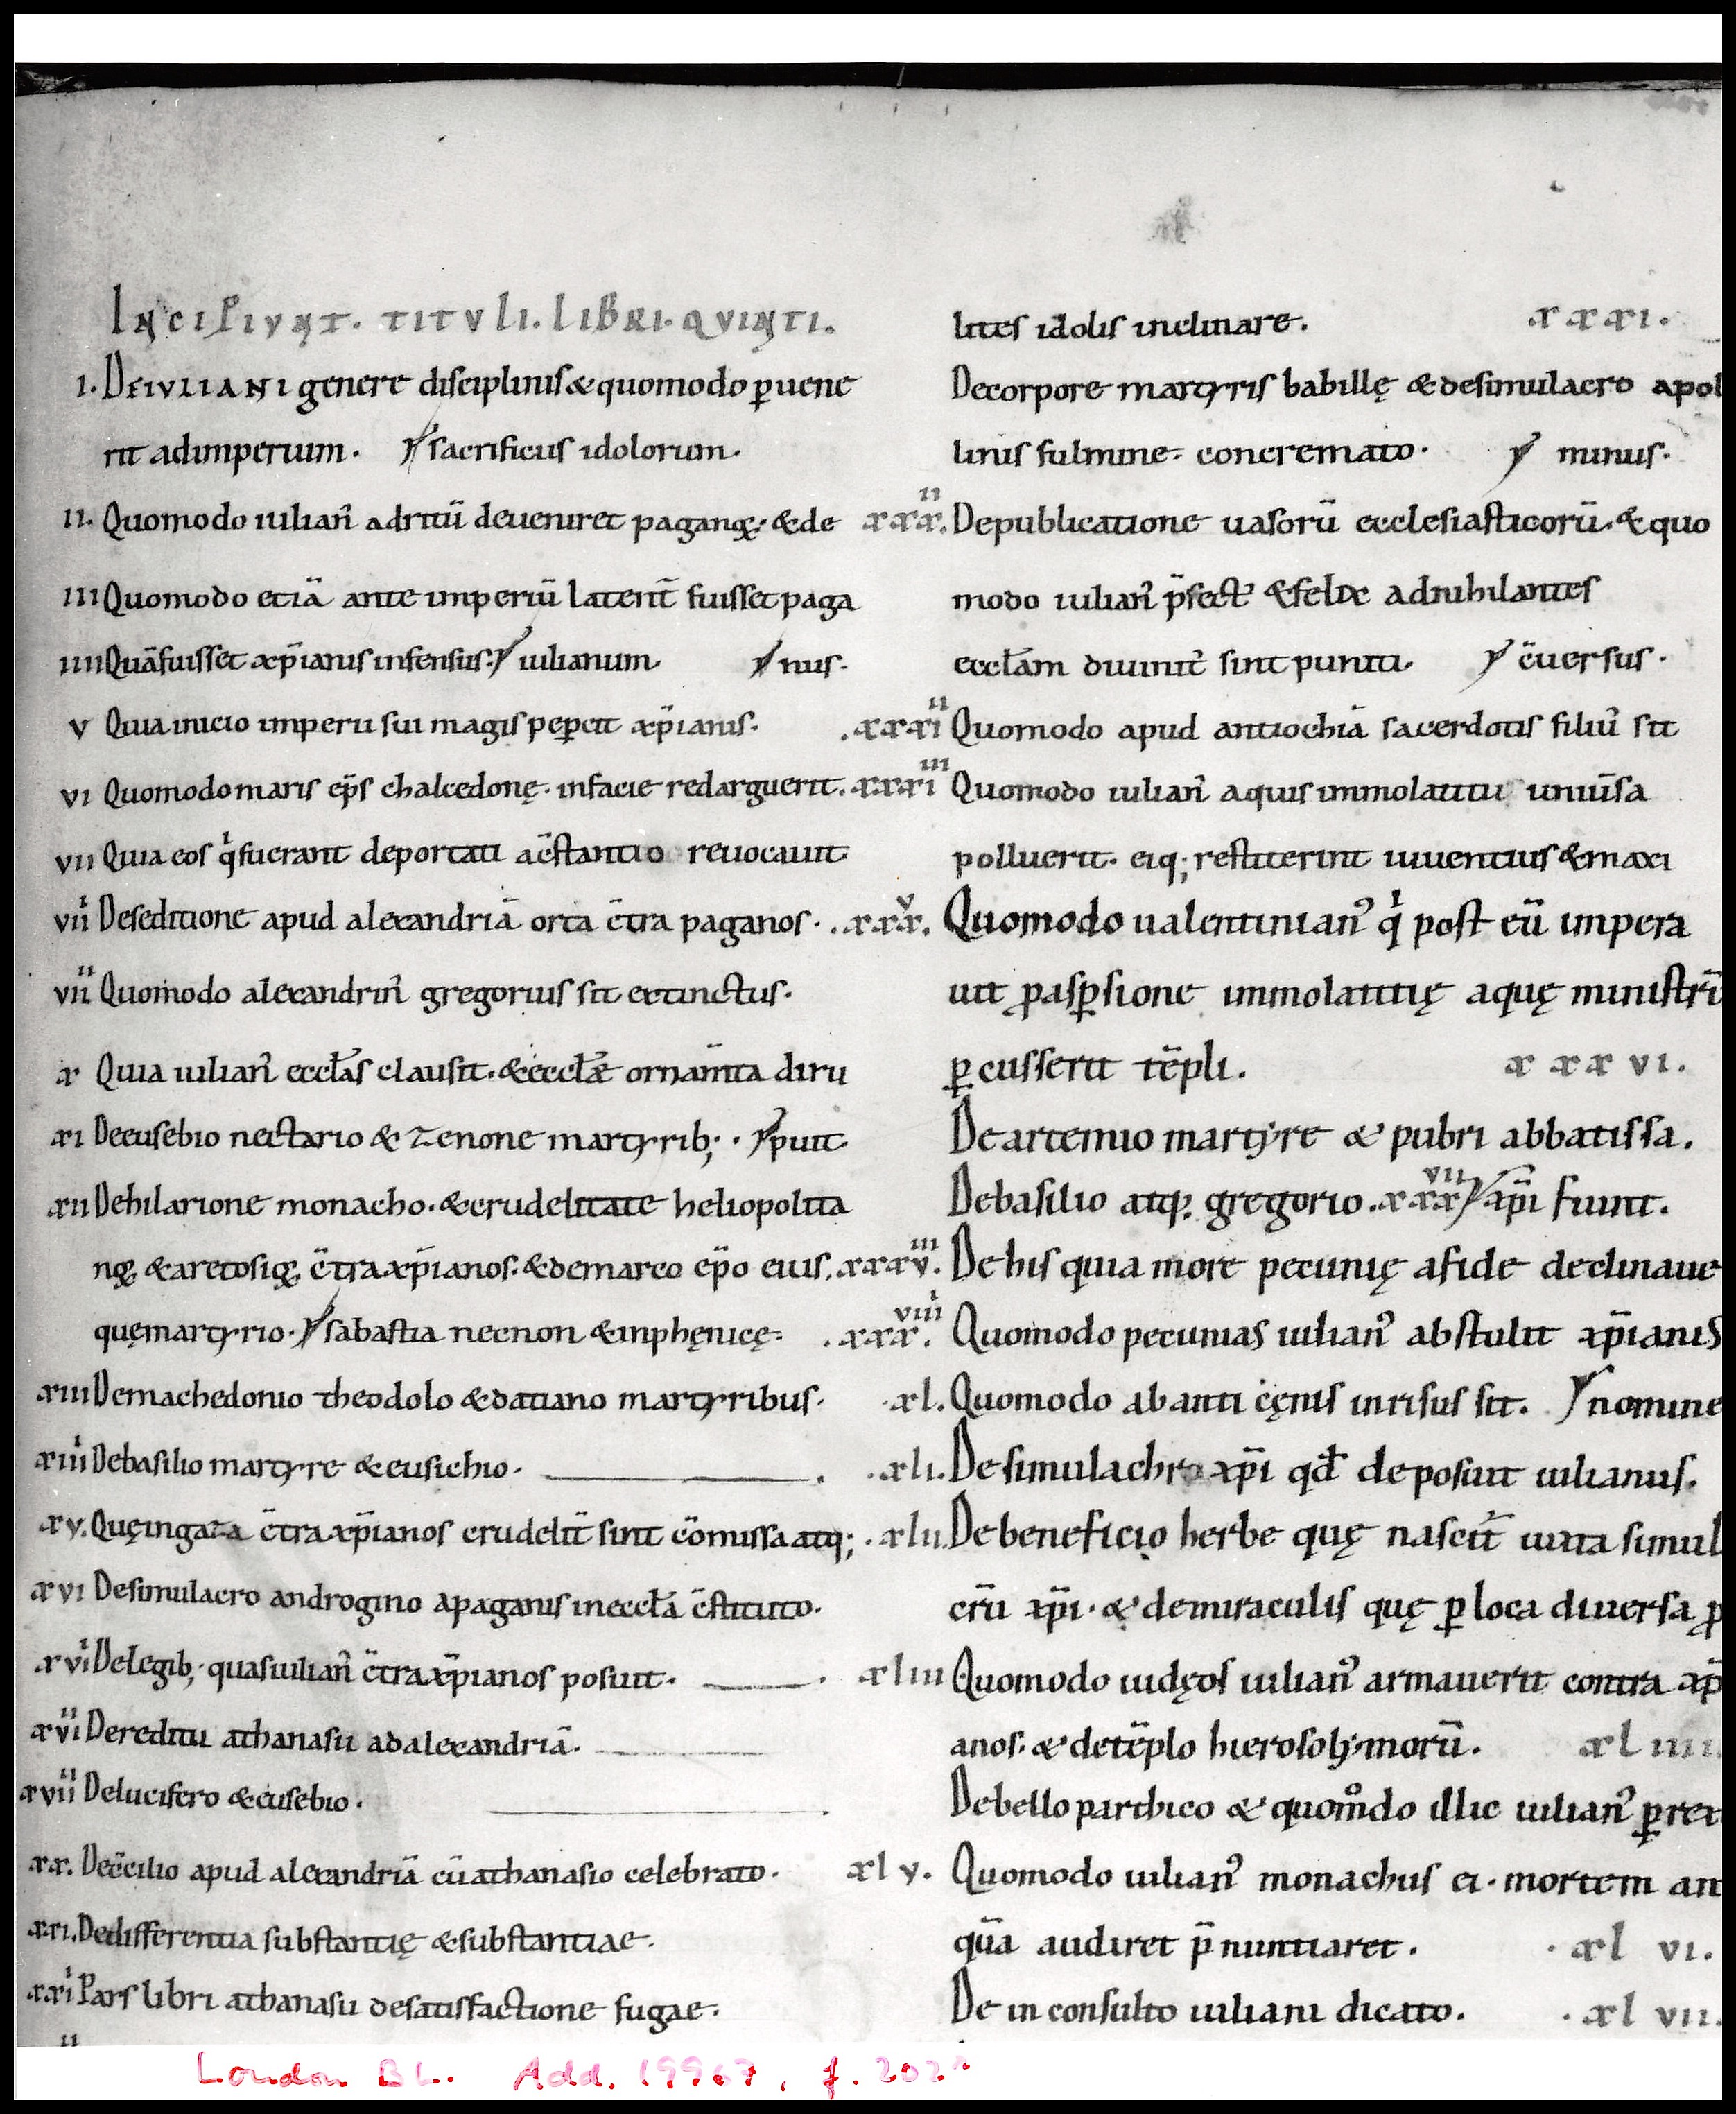 INCIPIUNT. TITULI. LIBRI. QUINTI.
I. DEIULIANI genere disciplinis & quomodo ꝑuene
rit adimperium. sacrificus idolorum.
II. Quomodo iulianꝰ adritū deueniret paganoꝝ. & de
III Quomodo etiā ante imperiū latent̄ fuisset paga
IIII Quā fuisset xp̄ianis infensus. iulianum. nus.
V Quia inicio imperii sui magis peꝑcit xp̄ianis.
VI Quomodo maris ep̄s chalcedonę. infacie redarguerit.
VII Quia eos qͥ fuerant deportati ac̄stantio reuocauit
VIII Deseditione apud alexandriā orta c̄tra paganos.
VIIII Quomodo alexandrinꝰ gregorius sit extinctus.
X Quia iulianꝰ eccl̄as clausit. & eccl̄æ ornam̄ta diru
XI Deeusebio nectario & zenone martyrib; . puit
XII Dehilarione monacho. & crudelitate heliopolita
noꝝ & aretosioꝝ c̄tra xp̄ianos. & demarco ep̄o eius.
quęmartyrio. sabastia necnon & inphęnicę
XIII Demachedonio theodolo & datiano martyribus.
XIIII Debasilio martyre & eusichio.
XV. Quęingaza c̄tra xp̄ianos crudelit̄ sint cōmissa atq;
XVI Desimulacro androgino apaganis ineccl̄a c̄stituto.
XVII Delegib; quasiulianꝰ c̄tra xp̄ianos posuit.
XVIII Dereditu athanasii adalexandriā.
XVIIII Delucifero & eusebio.
XX. Dec̄cilio apud alexandriā cū athanasio celebrato.
XXI. Dedifferentia substantię & substantiae.
XXII Pars libri athanasii desatisfactione fugae.
lites idolis inclinare. XXXI.
Decorpore martyris babillę & desimulacro apol
linis fulmine concremato. minus.
XXXII. Depublicatione uasorū ecclesiasticorū. & quo
modo iulianꝰ p̄fectꝰ & felix adnihilantes
eccl̄am diuinit̄ sint puniti. c̄uersus.
XXXIII Quomodo apud antiochiā sacerdotis filiꝰ sit
XXXIIII Quomodo iulianꝰ aquis immolatitiis uniūsa
polluerit. eiq; restiterint iuuentius & maxi
XXXV. Quomodo ualentinianꝰ qͥ post eū impera
uit ꝓ aspꝑsione immolatitię aquę ministrū
ꝑcusserit tēpli. XXXVI.
Deartemio martyre & pubri abbatissa.
Debasilio atq; gregorio. XXXVII xp̄i fiunt.
XXXVIII. Dehis quia more pecunię afide declinaue
XXXVIIII. Quomodo pecunias iulianꝰ abstulit xp̄ianis
XL. Quomodo abanti oc̄ęnis inrisus sit. nomine
XLI. Desimulachro xp̄i qd̄ deposuit iulianus.
XLII. Debeneficio herbe quę nascit̄ iuxta simul
crū xp̄i. & demiraculis quę ꝑ loca diuersa ꝓ
XLIII Quomodo iudęos iulianꝰ armauerit contra xp̄
anos. & detēplo hierosolymorū. XLIIII.
Debello parthico & quomͦdo illic iulianꝰ ꝑrex
XLV. Quomodo iulianꝰ monachus ei. mortem an
quā audiret p̄nuntiaret. XLVI.
De in consulto iuliani dicato. XLVII.
London BL. Add. 19967, f. 202ʳ